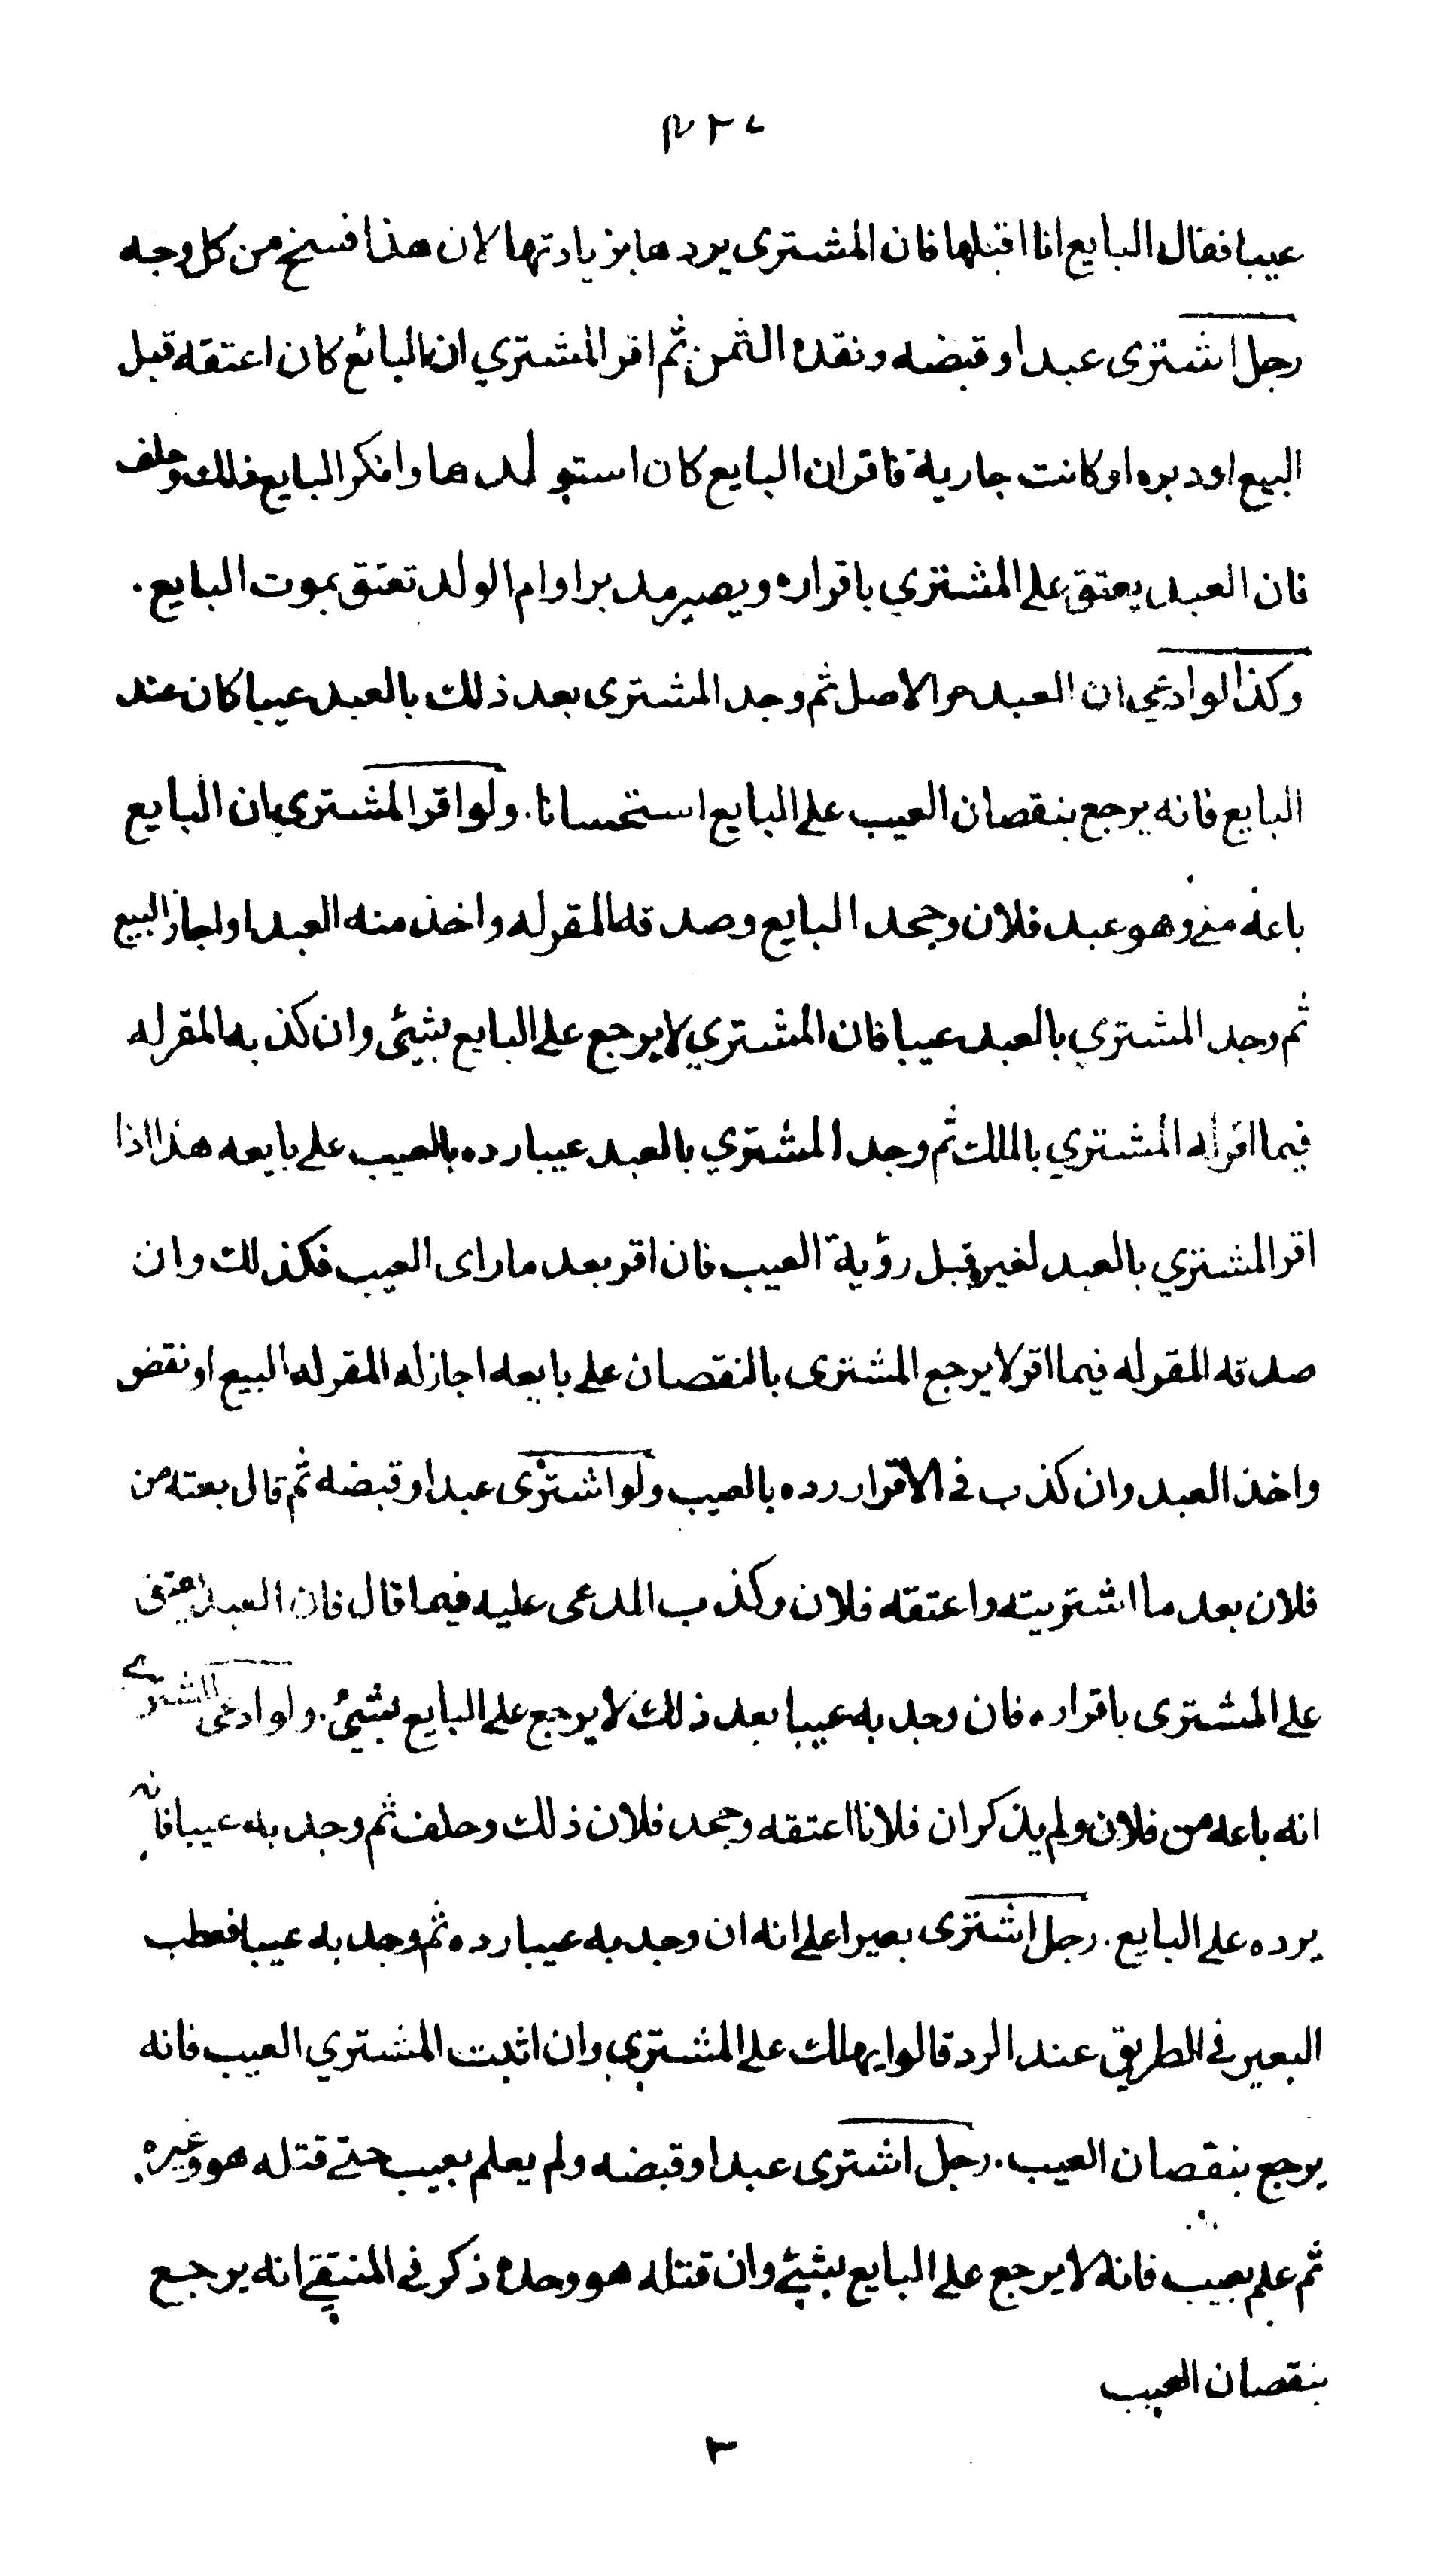 عيبا فقال البايع انا اقبلها فان المشترى يردها بزيادتها لان هذا فسخ من كل وجه
رجل اشترى عبدا وقبضه ونقده الثمن ثم اقر المشتري ان البائع كان اعتقه قبل
البيع او دبره او كانت جارية فاقر ان البايع كان استولدها وانكر البايع ذلك وحلف
فان العبد يعتق على المشتري باقراره ويصير مدبرا وام الولد تعتق بموت البايع .
وكذا لو ادعى ان العبد حر الاصل ثم وجد المشترى بعد ذلك بالعبد عيبا كان عند
البايع فانه يرجع بنقصان العيب على البايع استحسانا . ولو اقر المشترى بان البايع
باعه منى وهو عبد فلان وجحد البايع وصدقه المقر له واخذ منه العبد او اجاز البيع
ثم وجد المشتري بالعبد عيبا فان المشتري لا يرجع على البايع بشيئ وان كذبه المقر له
فيما اقر له المشتري بالملك ثم وجد المشتري بالعبد عيبا رده بالعيب على بايعه هذا اذا
اقر المشتري بالعبد لغيره قبل رؤية العيب فان اقر بعد ما راى العيب فكذلك وان
صدقه المقر له فيما اقر لا يرجع المشترى بالنقصان على بايعه اجاز له المقر له البيع او نقض
واخذ العبد وان كذب فى الاقرار رده بالعيب ولو اشترى عبدا وقبضه ثم قال بعته من
فلان بعد ما اشتريته واعتقه فلان وكذب المدعى عليه فيما قال فان العبد يعتق
على المشترى باقراره فان وجد به عيبا بعد ذلك لا يرجع على البايع بشيئ . ولو ادعى المشترى
انه باعه من فلان ولم يذكر ان فلانا اعتقه وجحد فلان ذلك وحلف ثم وجد به عيبا فانه
يرده على البايع . رجل اشترى بعيرا على انه ان وجد به عيبا رده ثم وجد به عيبا فعطب
البعير فى الطريق عند الرد قالوا يهلك على المشترى وان اثبت المشتري العيب فانه
يرجع بنقصان العيب . رجل اشترى عبدا وقبضه ولم يعلم بعيب حتى قتله هو وغيره .
ثم علم بعيب فانه لا يرجع على البايع بشيئ وان قتله هو وحده ذكر فى المنتقى انه يرجع
بنقصان العيب
٢